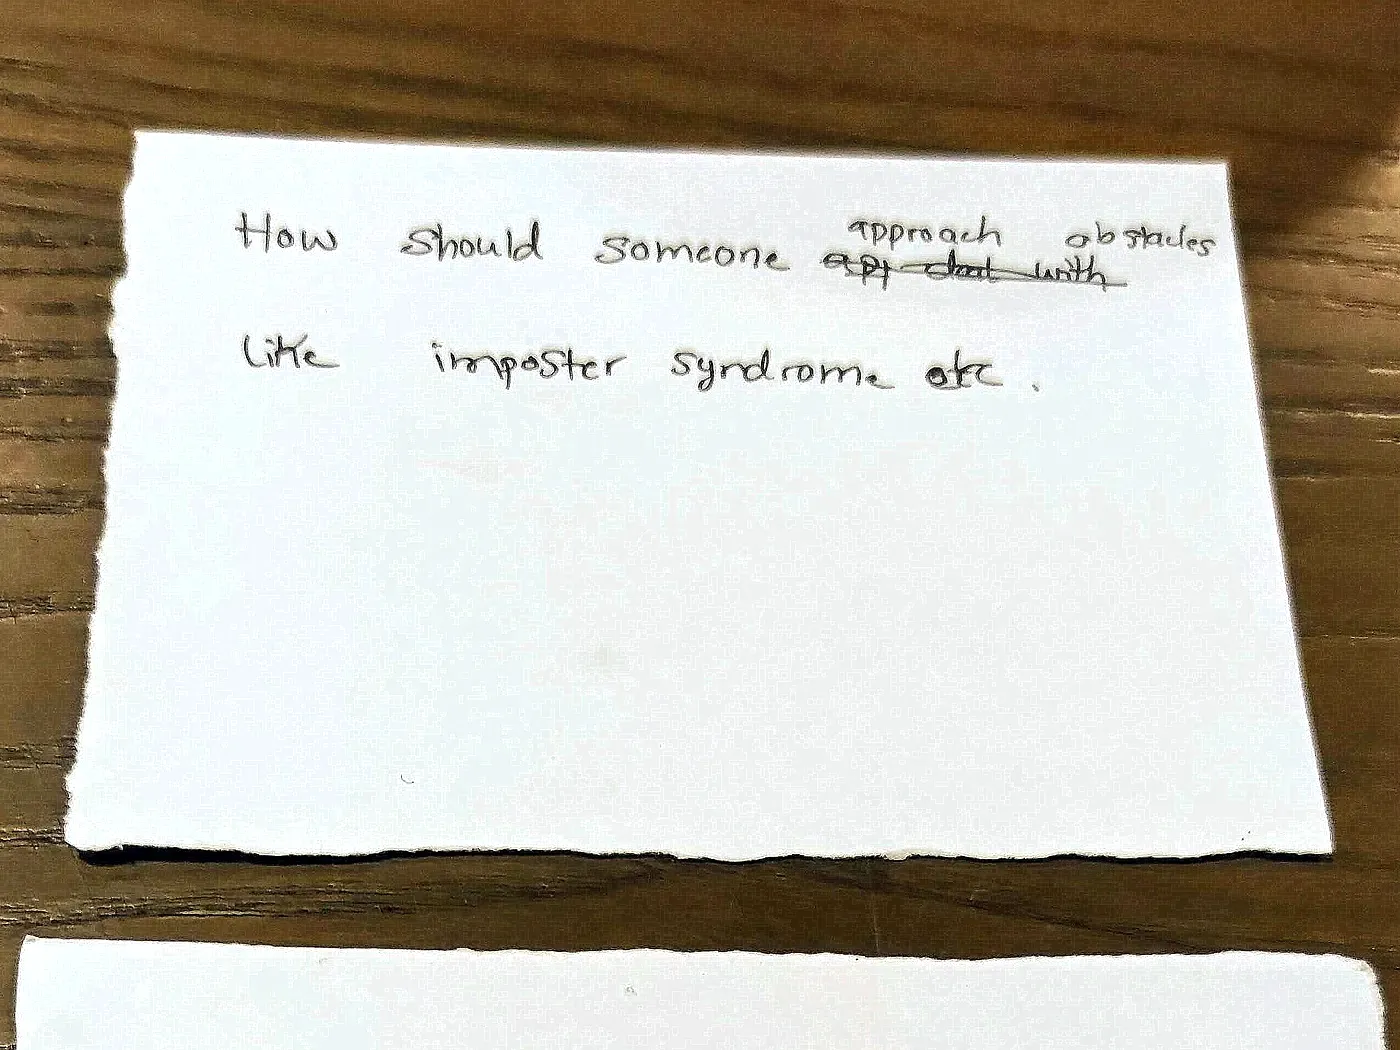 How should someone approach obstacles
like imposter syndrome etc.